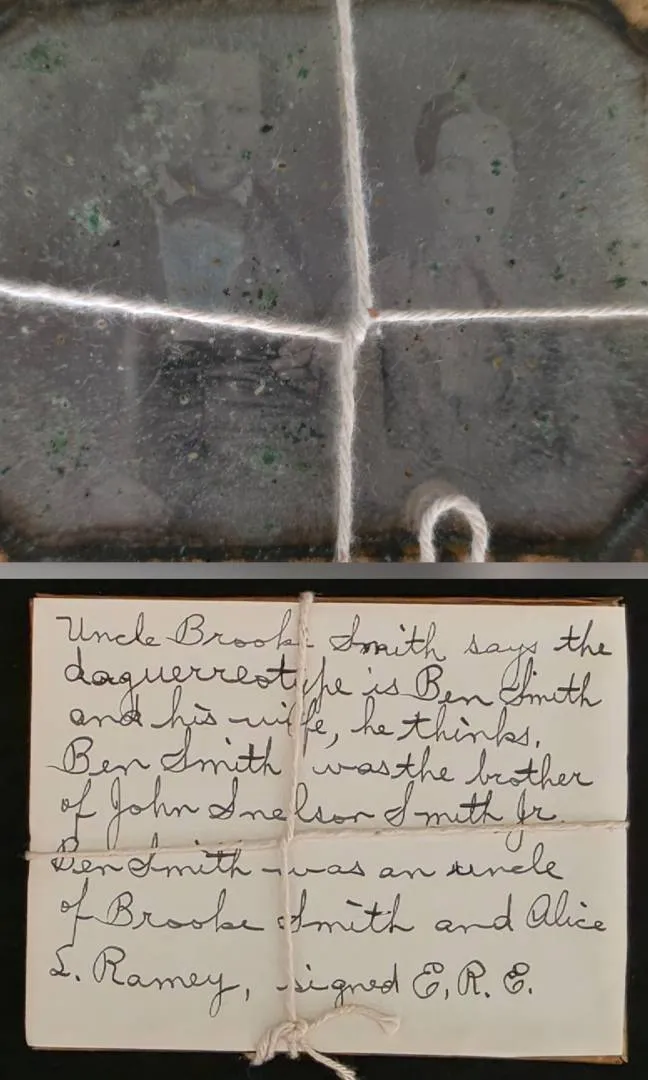 Uncle Brooke Smith says the
daguerreotype is Ben Smith
and his wife, he thinks.
Ben Smith was the brother
of John Snelson Smith Jr.
Ben Smith was an uncle
of Brooke Smith and Alice
L. Ramey, signed E, R. E.